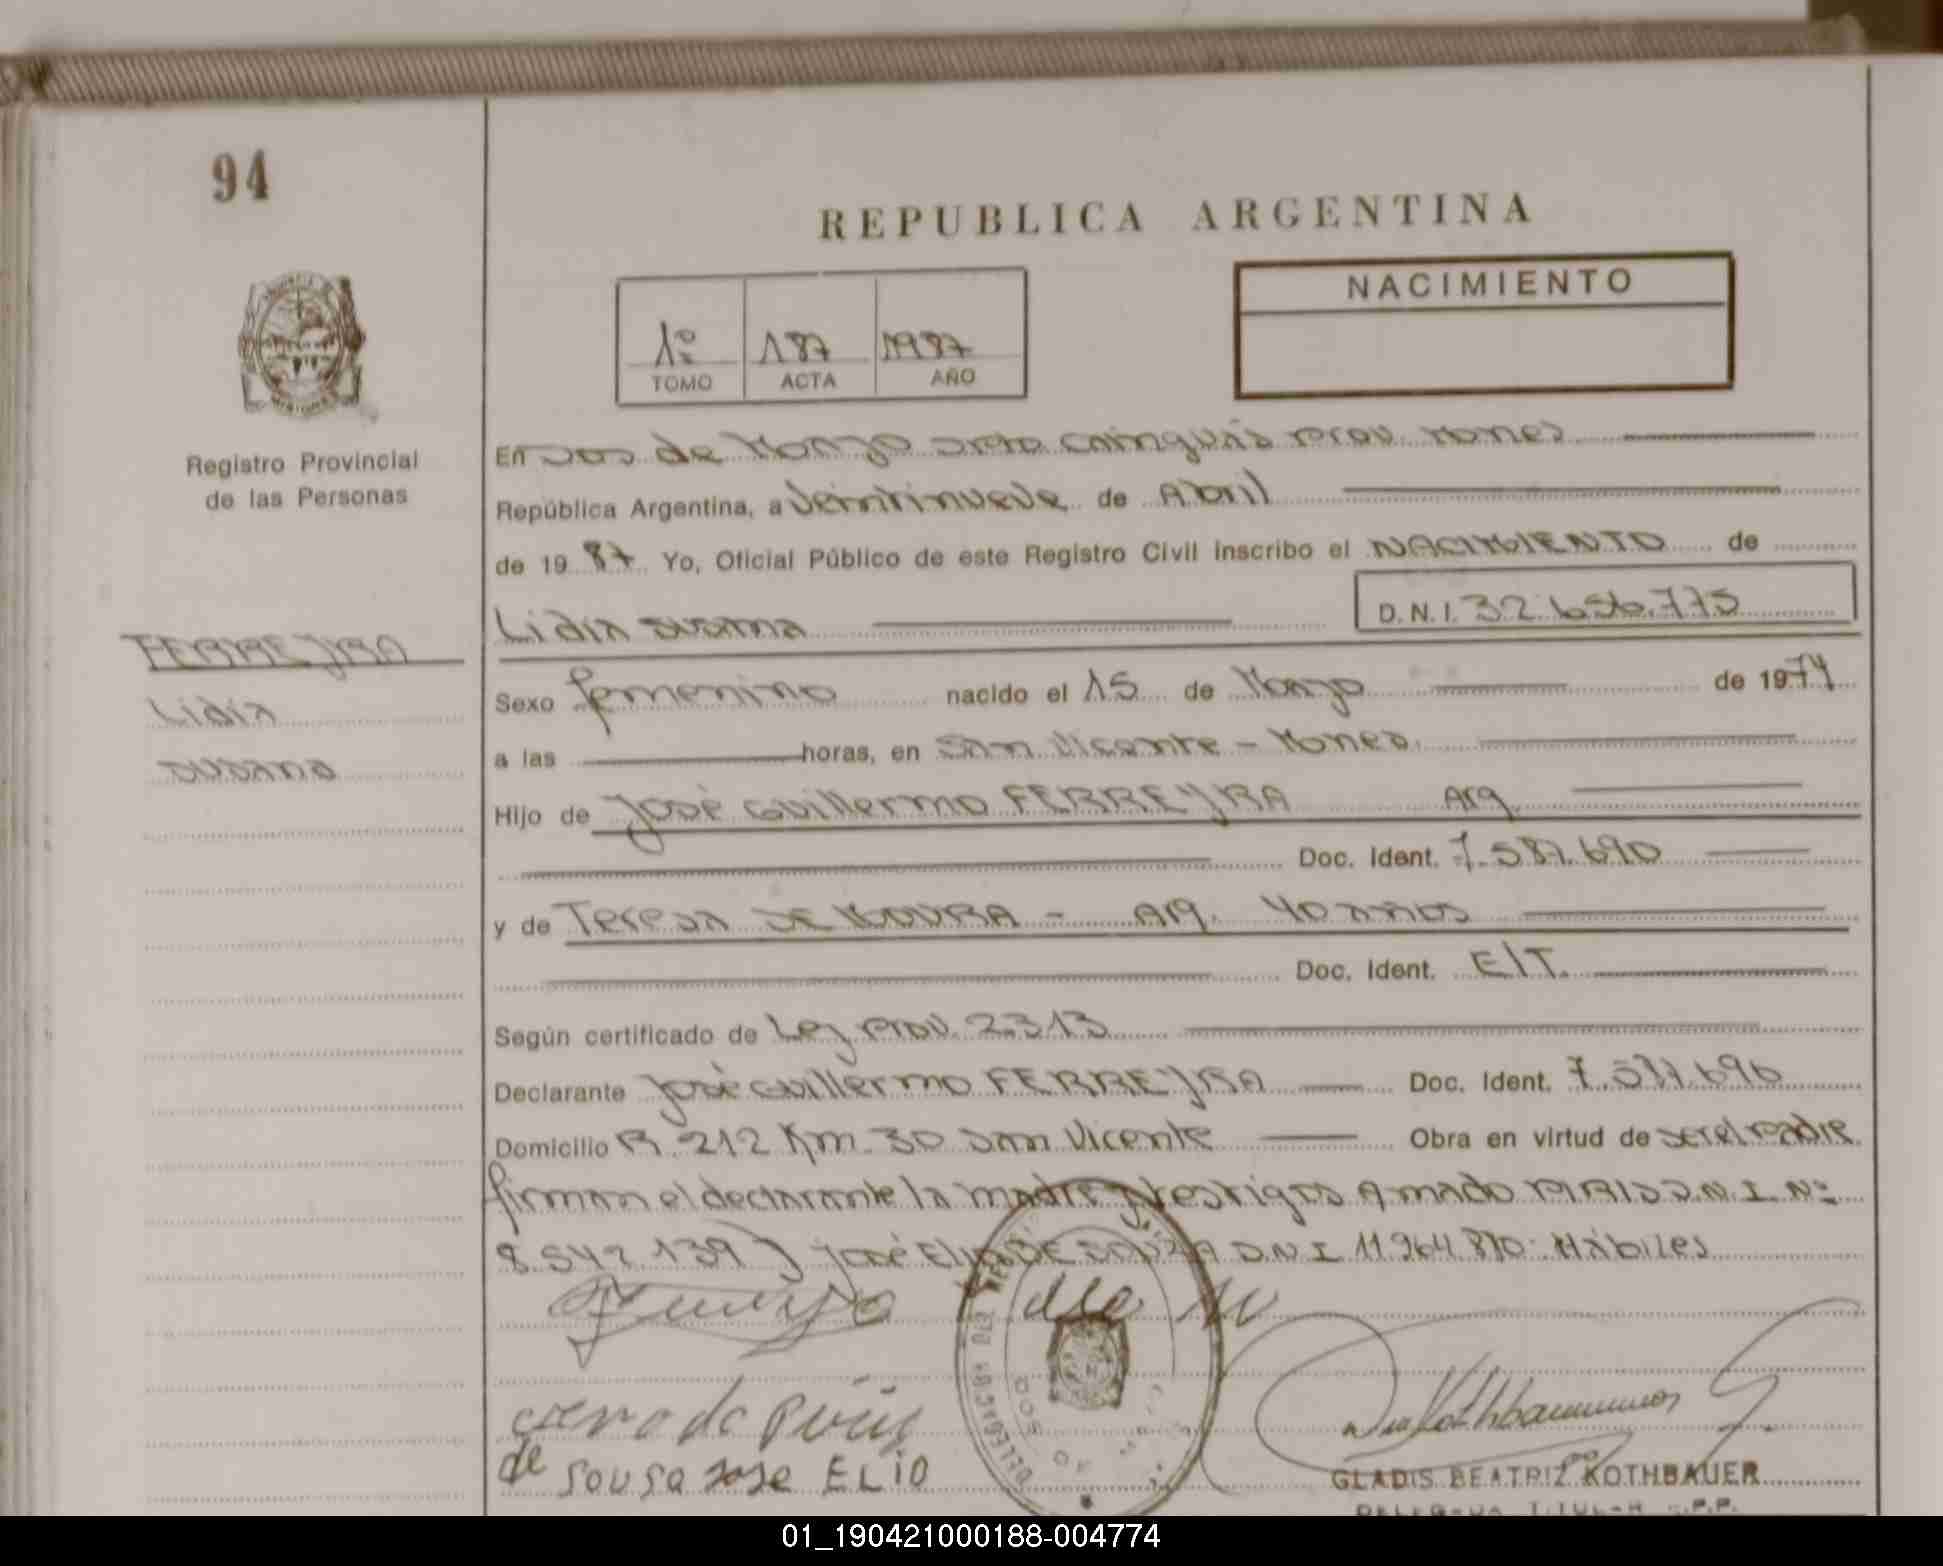 94
REPUBLICA ARGENTINA
NACIMIENTO
1º 187 1987
TOMO ACTA AÑO
Registro Provincial
de las Personas
En Dos de Marzo Dpto Cainguás Prov. Mones
República Argentina, a veintinueve de Abril
de 19 87 Yo, Oficial Público de este Registro Civil inscribo el NACIMIENTO de
Lidia Susana D.N.I. 32.656.775
FERREYRA
Lidia
Susana
Sexo femenino nacido el 15 de Marzo de 1974
a las horas, en San Vicente - Mones
Hijo de José Guillermo FERREYRA Arg.
Doc. Ident. 7.587.690
y de Teresa DE MOURA - Arg. 40 años
Doc. Ident. E/T.
Según certificado de Ley Prov. 2313
Declarante José Guillermo FERREYRA Doc. Ident.
Domicilio R. 212 Km. 30 San Vicente Obra en virtud de ser el padre
firman el declarante la madre y testigos Amado PIRIS D.N.I. Nº
8.542.139 y José Elio DE SOUZA D.N.I 11.964.870. Hábiles
de Sousa Jose ELIO
GLADIS BEATRIZ KOTHBAUER
DELEGADA TITULAR R.P.P.
01_190421000188-004774